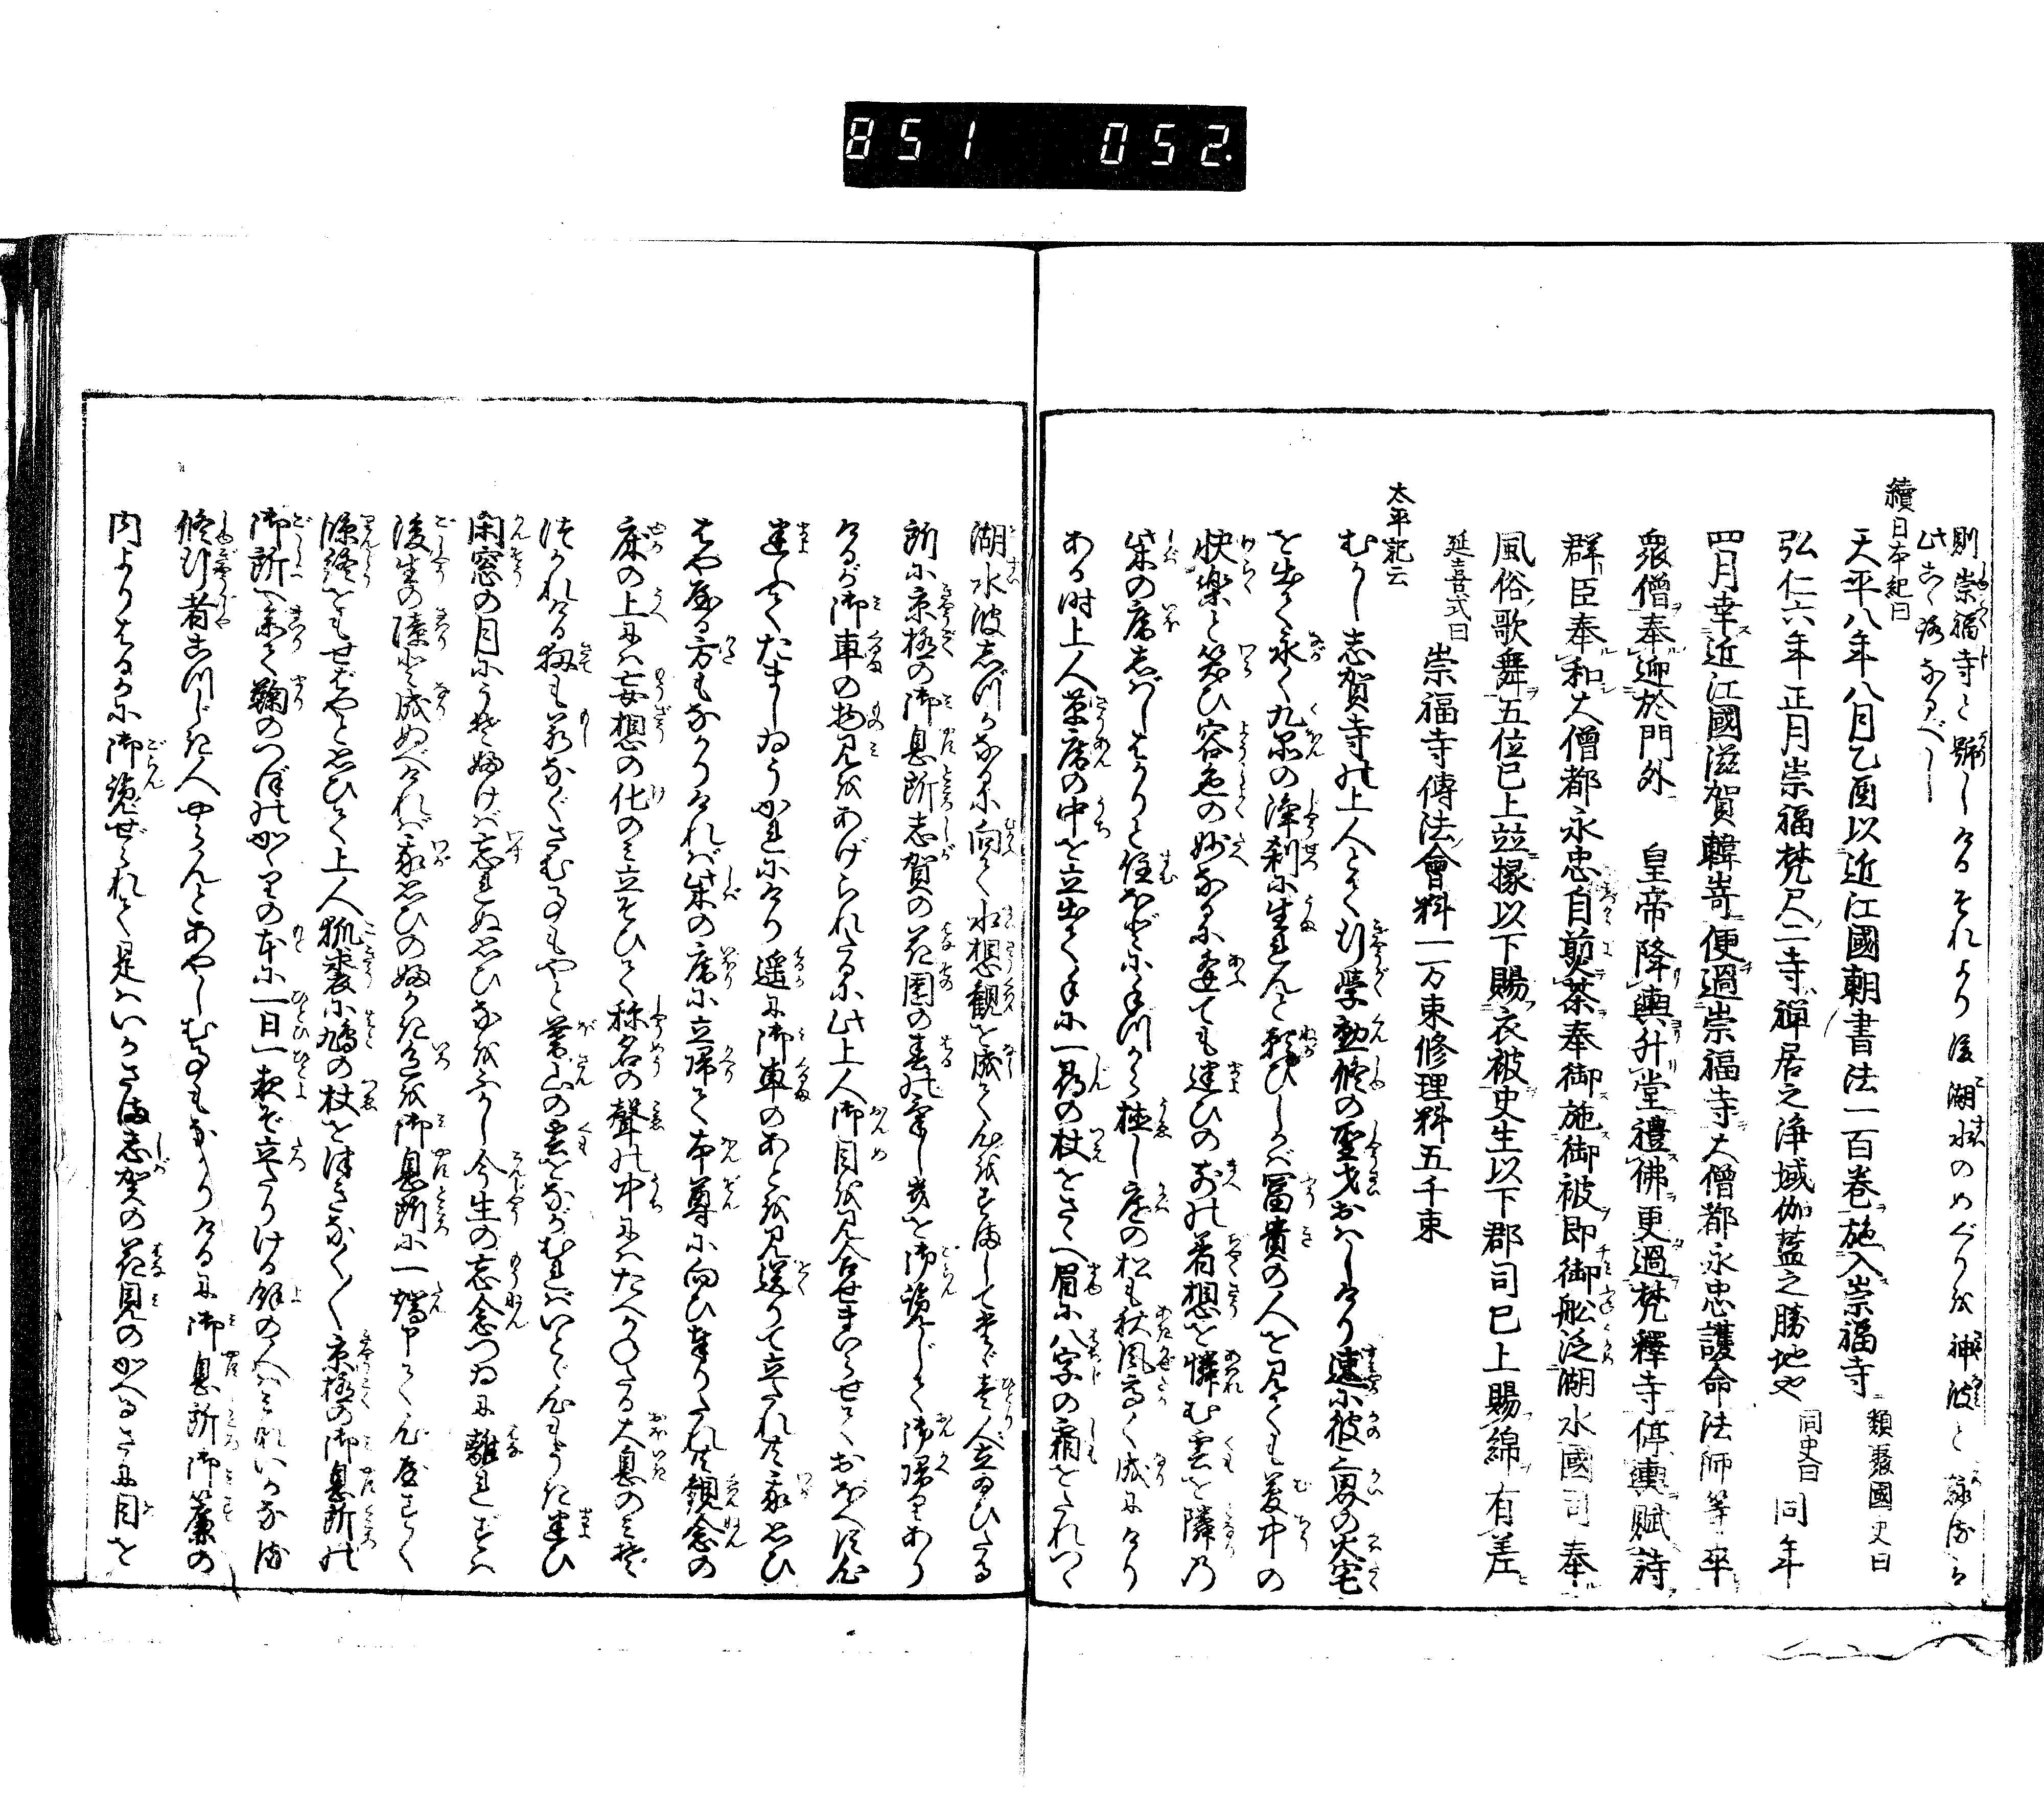 851 052.
則崇福寺と号しけるそれより後湖水のめぐりを神波と詠ずる
此古く跡なるべし
續日本紀曰
天平八年八月乙酉以近江國朝書法一百巻施入崇福寺 類聚國史曰
弘仁六年正月崇福梵尺二寺禅居之浄域伽藍之勝地也 同史曰 同年
四月幸近江國滋賀韓嵜便過崇福寺大僧都永忠護命法師等率
衆僧奉迎於門外 皇帝降輿升堂禮佛更過梵釋寺停輿賦詩
群臣奉和大僧都永忠自煎茶奉御施御被即御舩泛湖水國司奉
風俗歌舞五位已上並掾以下賜衣被史生以下郡司已上賜綿有差
延喜式曰 崇福寺傳法會料一万束修理料五千束
太平記云
むかし志賀寺の上人とて行学勤修の聖才おはしけり速に彼三界の火宅
を出て永く九品の浄刹に生れんと願ひしかば冨貴の人を見ても夢中の
快楽と笑ひ容色の妙なるに逢ても迷ひの前の著想を憐む雲を隣の
柴の庵しばしばかりと住ほどに手づから植し庭の松も秋風高く成にけり
ある時上人草庵の中を立出て手に一尋の杖をさゝへ眉に八字の霜をたれつゝ
湖水波しづかなるに向て水想観を成て心をすまして只一人立給ひたる
所に京極の御息所志賀の花園の春の気しきを御覧じて御帰りあり
けるが御車の物見をあげられたるに此上人御目を見合せまいらせておぼへず心
迷ふてたましゐうかれにけり遥に御車のあとを見送りて立たれ共我思ひ
はや遣る方もなかりければ柴の庵に立帰て本尊に向ひ奉りたれ共観念の
床の上には妄想の化のみ立そひて称名の聲の中にはたへかねたる大息のみぞ
つかれける扨も若なぐさむ事もやと暮山の雲をながむればいとゞ心もうき迷ひ
閑窓の月にうそぶけば忘れぬ思ひなをふかし今生の忘念つゐに離れずば
後生の障と成ぬべければ我思ひの深き色を御息所に一端申て心やすく
臨終をもせばやと思ひて上人狐裘に鳩の杖をつきなく〳〵京極の御息所の
御所へ参て鞠のつぼのかゝりの本に一日一夜ぞ立たりける餘の人はみないかなる
修行者こつじき人やらんとあやしむ事もなかりけるに御息所御簾の
内よりはるかに御覧ぜられて是はいかさま志賀の花見のかへるさに目を